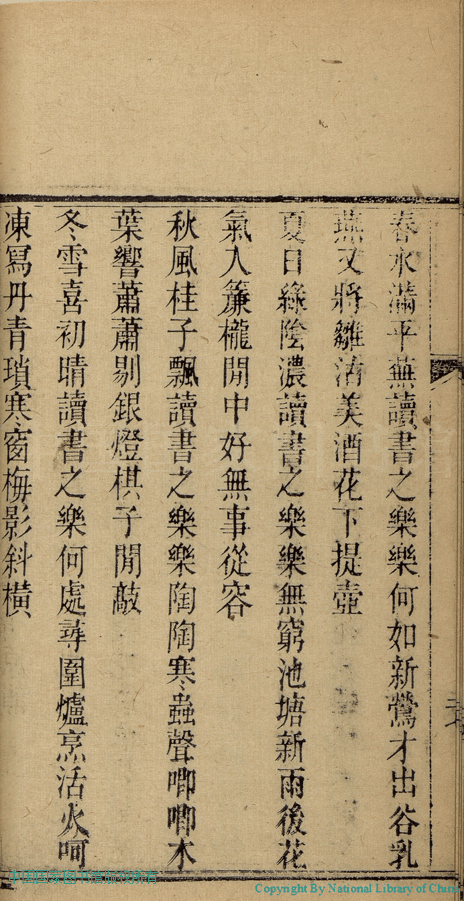 春水滿平蕪讀書之樂樂何如新鶯才出谷乳
燕又將雛沽美酒花下提壺
夏日綠陰濃讀書之樂樂無窮池塘新雨後花
氣入簾櫳閒中好無事從容
秋風桂子飄讀書之樂樂陶陶寒蟲聲唧唧木
葉響蕭蕭剔銀燈棋子閒敲
冬雪喜初晴讀書之樂何處尋圍爐烹活火呵
凍寫丹青瑣寒窗梅影斜橫
Copyright By National Library of China